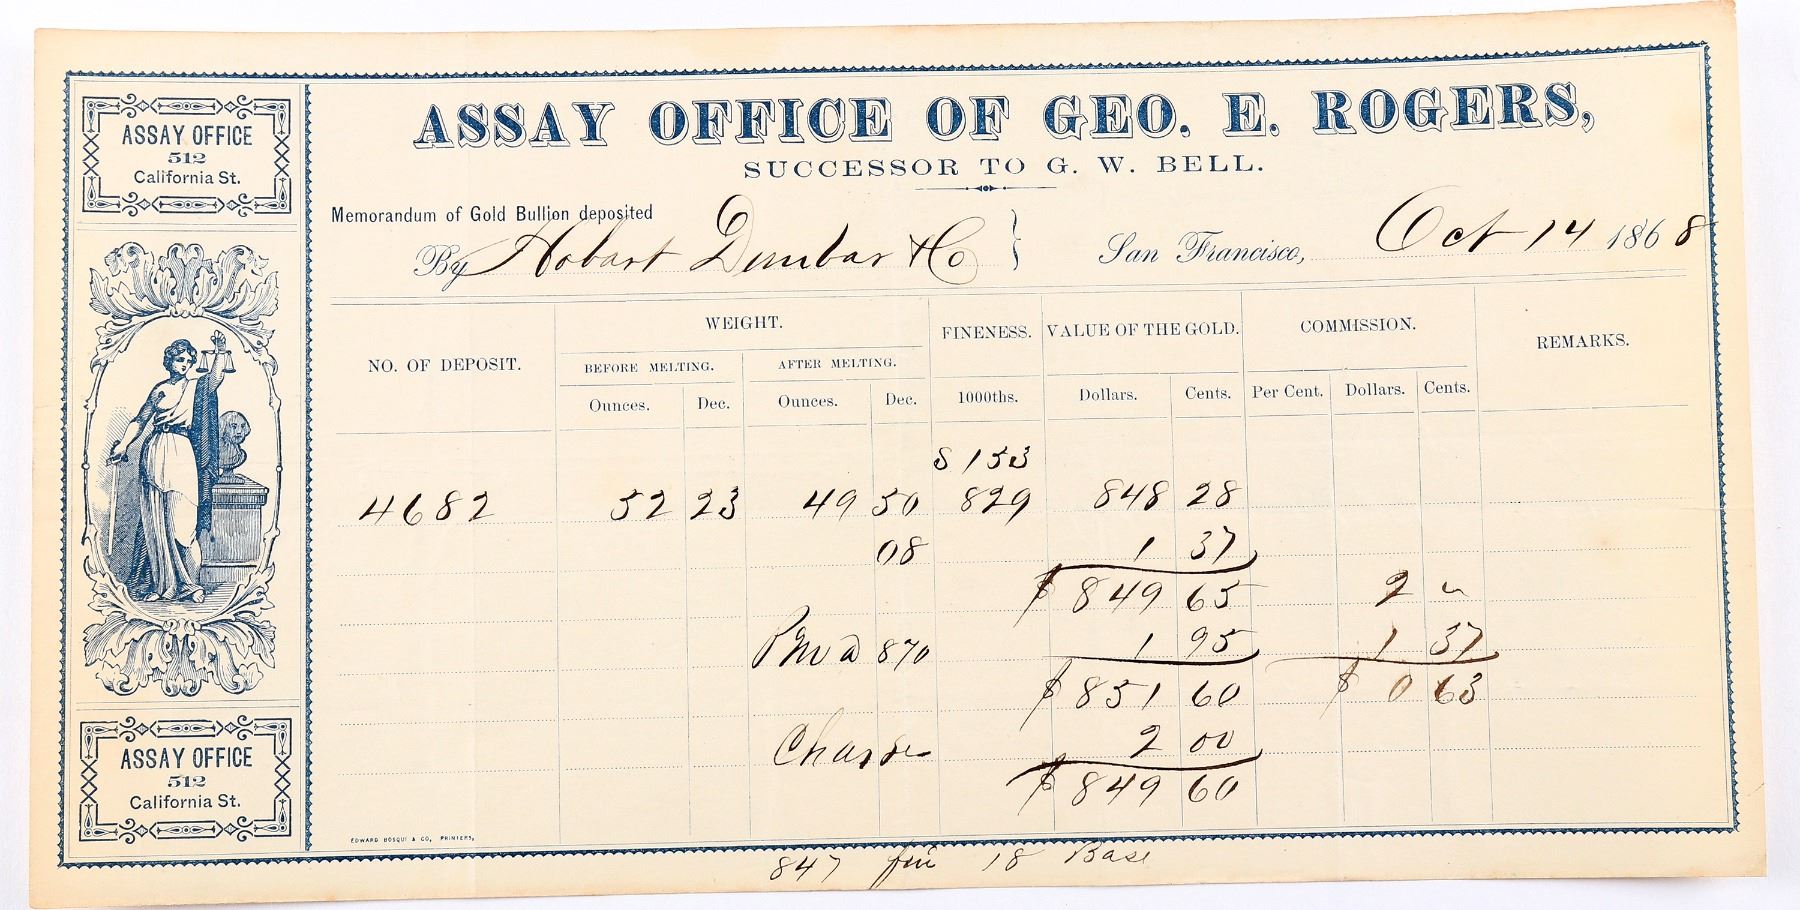 ASSAY OFFICE
512
California St.
ASSAY OFFICE OF GEO. E. ROGERS,
SUCCESSOR TO G. W. BELL.
Memorandum of Gold Bullion deposited
By Hobart Dunbar & Co } San Francisco, Oct 14 1868
NO. OF DEPOSIT. WEIGHT. FINENESS. VALUE OF THE GOLD. COMMISSION. REMARKS.
BEFORE MELTING. AFTER MELTING.
Ounces. Dec. Ounces. Dec. 1000ths. Dollars. Cents. Per Cent. Dollars. Cents.
S 153
4682 52 23 49 50 829 848 28
08 1 37
$ 849 65 2 "
870 1 95 1 37
$ 851 60 $ 0 63
2 00
$ 849 60
ASSAY OFFICE
512
California St.
EDWARD BOSQUI & CO, PRINTERS,
847 fin 18 Base